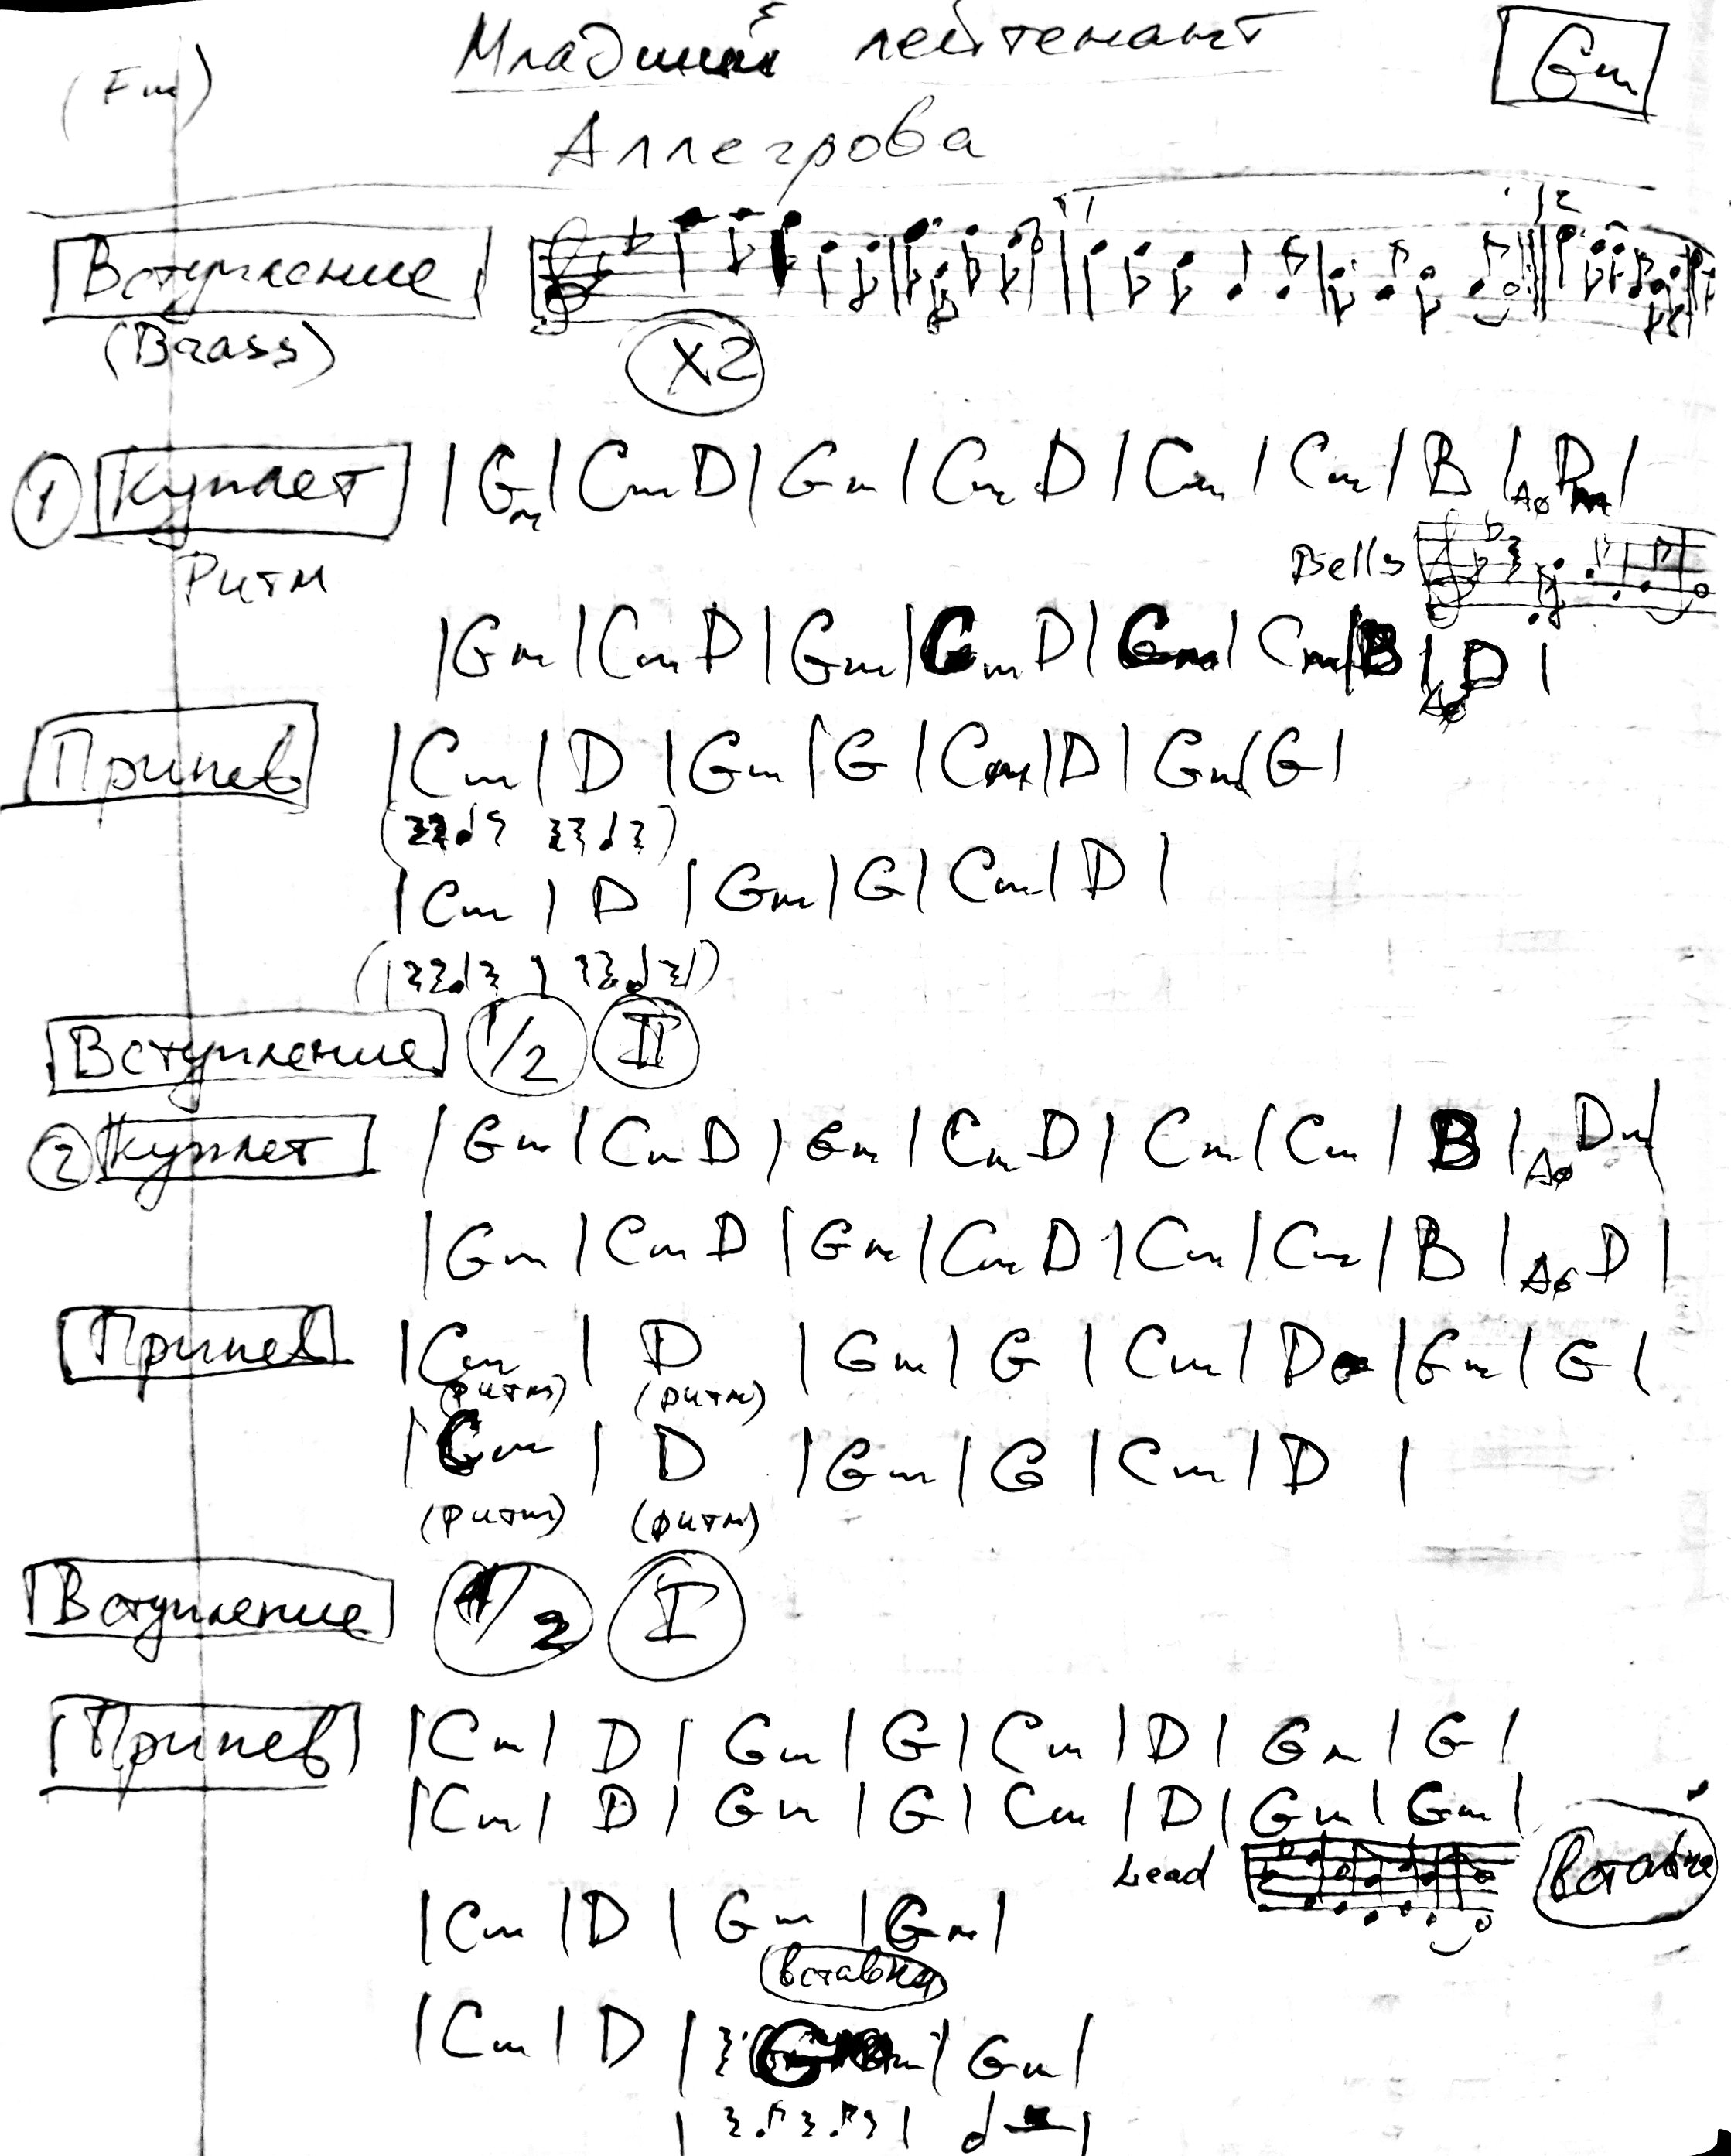 (Fm) Младший лейтенант Gm
Аллегрова
Вступление
(Brass) X2
① Куплет | Gm | Cm D | Gm | Cm D | Cm | Cm | B | Aø Dm |
Ритм Bells
| Gm | Cm D | Gm | Cm D | Cm | Cm | B | Aø D |
Припев | Cm | D | Gm | G | Cm | D | Gm | G |
| Cm | D | Gm | G | Cm | D |
Вступление 1/2 II
② Куплет | Gm | Cm D | Gm | Cm D | Cm | Cm | B | Aø Dm |
| Gm | Cm D | Gm | Cm D | Cm | Cm | B | Aø D |
Припев | Cm | D | Gm | G | Cm | D | Gm | G |
(ритм) (ритм)
| Cm | D | Gm | G | Cm | D |
(ритм) (ритм)
Вступление 1/2 I
Припев | Cm | D | Gm | G | Cm | D | Gm | G |
| Cm | D | Gm | G | Cm | D | Gm | Gm |
Lead вставка
| Cm | D | Gm | Gm |
вставка
| Cm | D | Gm | Gm |